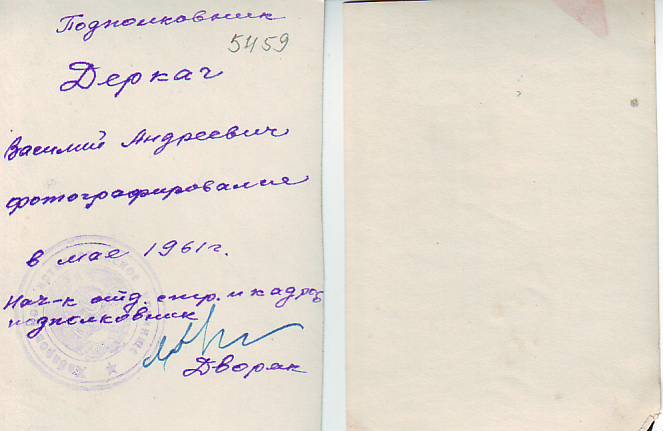 Подполковник
5459
Деркач
Василий Андреевич
фотографирование
в мае 1961г.
Нач-к отд. стр. и кадров
подполковник
Дворяк